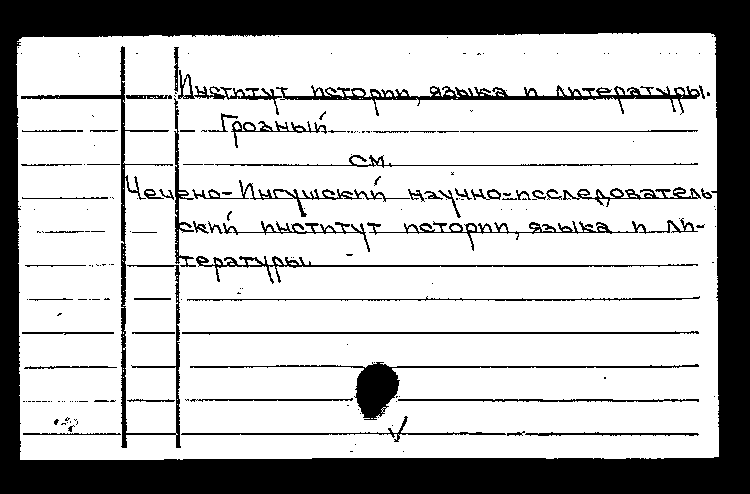 Институт истории, языка и литературы.
Грозный.
см.
Чечено-Ингушский научно-исследователь-
ский институт истории, языка и ли-
тературы.